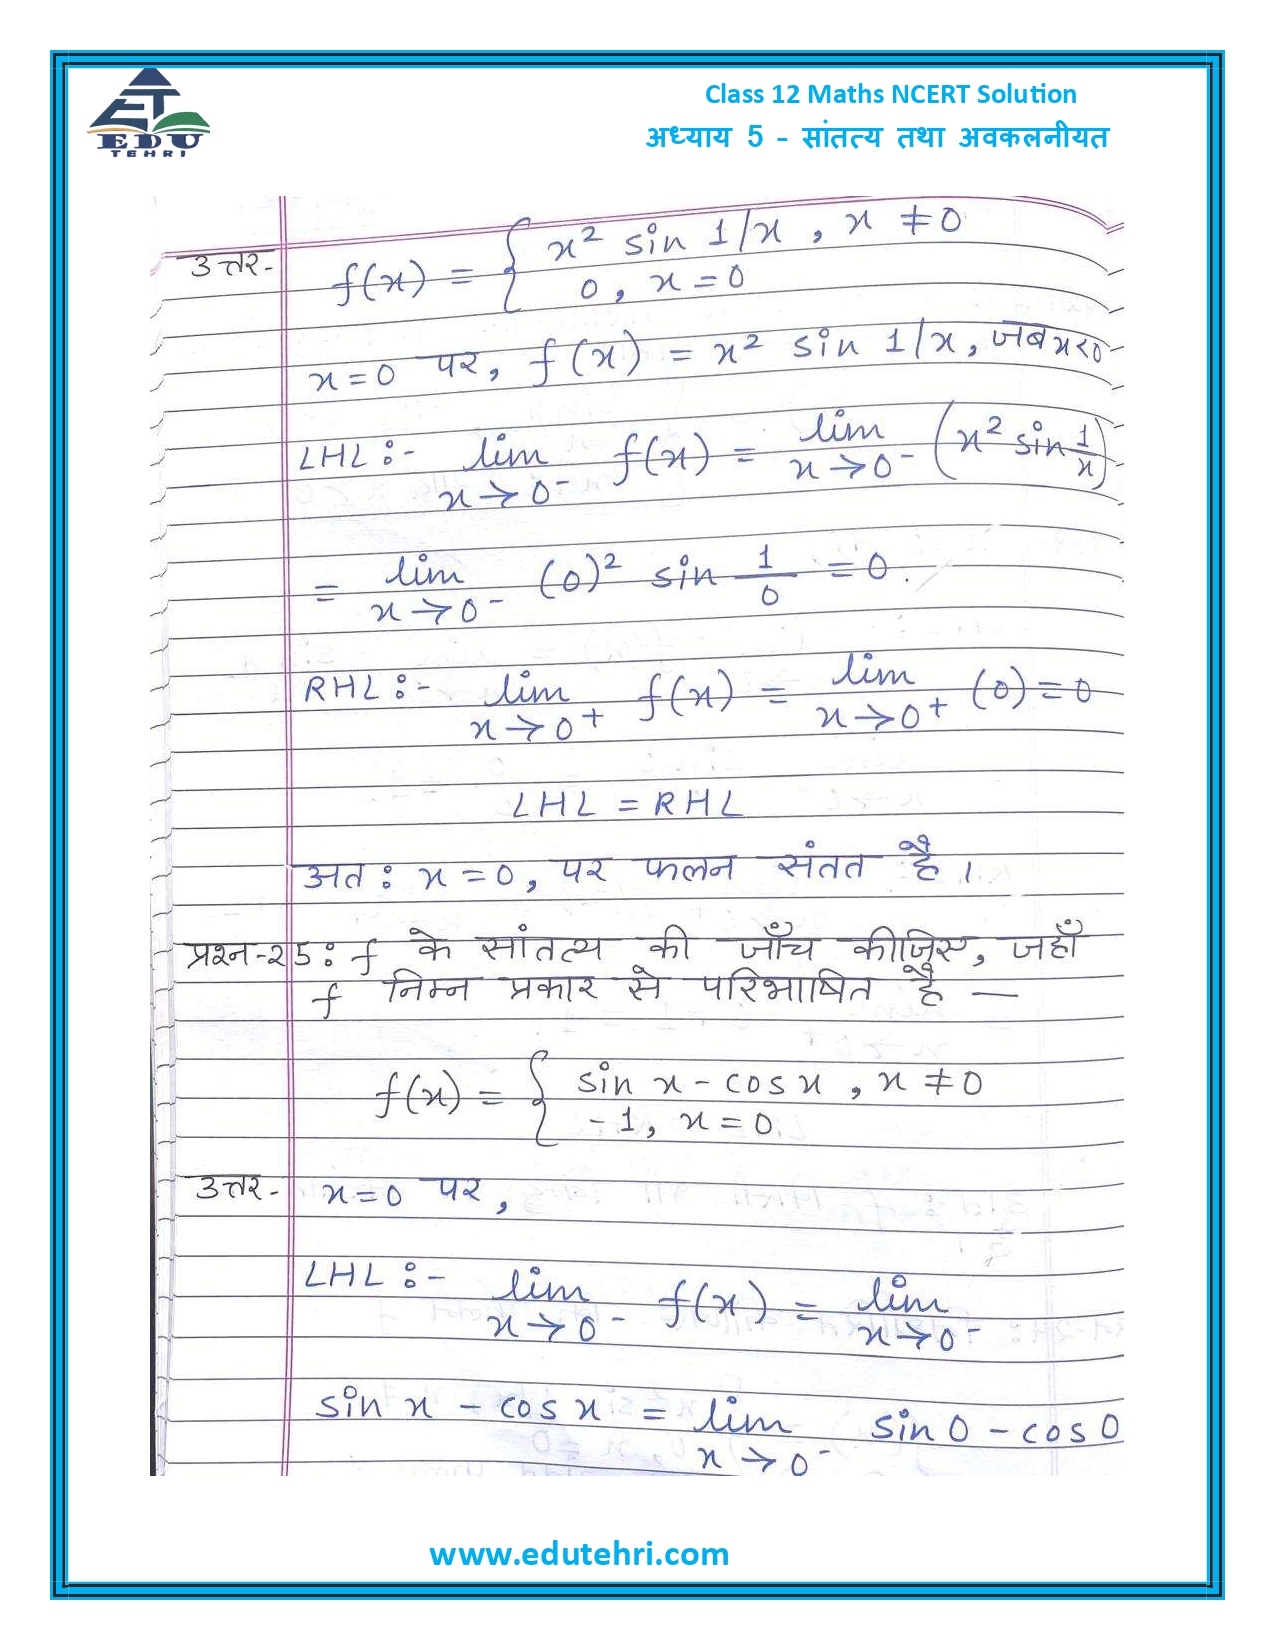 EDU
TEHRI
Class 12 Maths NCERT Solution
अध्याय 5 - सांतत्य तथा अवकलनीयत
उत्तर- f(x) = { x² sin 1/x , x ≠ 0
0 , x = 0
x = 0 पर, f(x) = x² sin 1/x, जब x<0
LHL :- lim x→0⁻ f(x) = lim x→0⁻ (x² sin 1/x)
= lim x→0⁻ (0)² sin 1/0 = 0.
RHL :- lim x→0⁺ f(x) = lim x→0⁺ (0) = 0
LHL = RHL
अत: x = 0, पर फलन संतत है।
प्रश्न-25: f के सांतत्य की जाँच कीजिए, जहाँ
f निम्न प्रकार से परिभाषित है —
f(x) = { sin x - cos x , x ≠ 0
-1, x = 0.
उत्तर- x = 0 पर,
LHL :- lim x→0⁻ f(x) = lim x→0⁻
sin x - cos x = lim x→0⁻ sin 0 - cos 0
www.edutehri.com